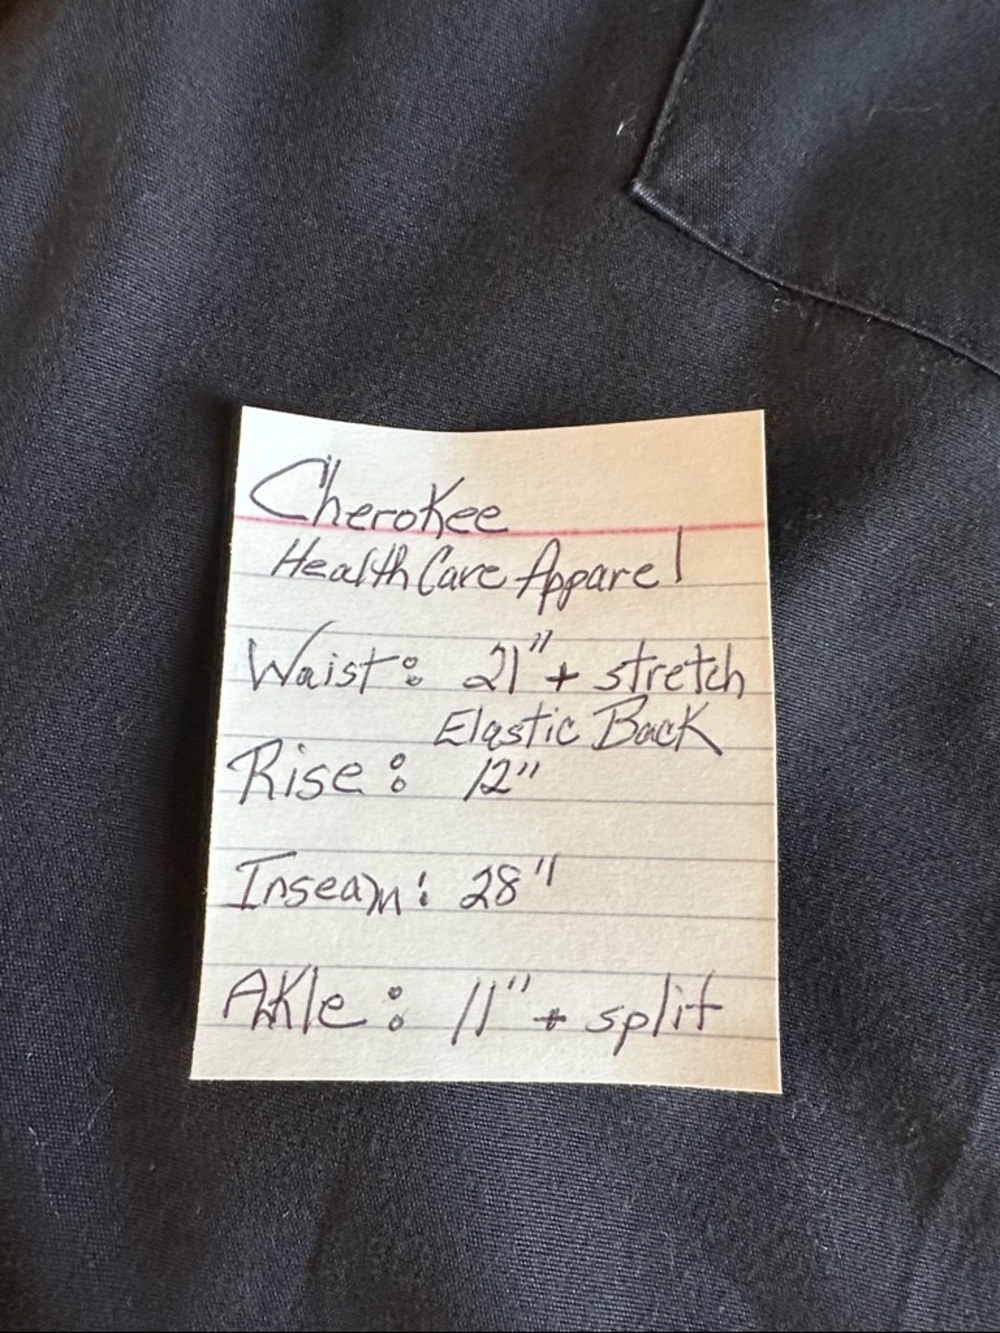 Cherokee
HealthCare Apparel
Waist: 21" + stretch
Elastic Back
Rise: 12"
Inseam: 28"
Ankle: 11" + split